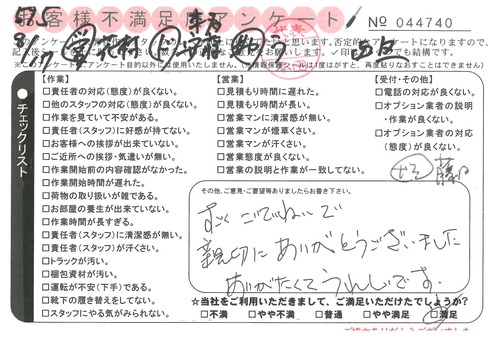 お客様不満足度アンケート
No 044740
【作業】
□責任者の対応(態度)が良くない。
□他のスタッフの対応(態度)が良くない。
□作業を見ていて不安がある。
□責任者(スタッフ)に好感が持てない。
□お客様への挨拶が出来ていない。
□ご近所への挨拶・気遣いが無い。
□作業開始前の内容確認がなかった。
□作業開始時間が遅れた。
□荷物の取り扱いが雑である。
□お部屋の養生が出来ていない。
□作業時間が長すぎる。
□責任者(スタッフ)に清潔感が無い。
□責任者(スタッフ)が汗くさい。
□トラックが汚い。
□梱包資材が汚い。
□運転が不安(下手)である。
□靴下の履き替えをしてない。
□スタッフにやる気がみられない。
【営業】
□見積もり時間に遅れた。
□見積もり時間が長い。
□営業マンに清潔感が無い。
□営業マンが煙草くさい。
□営業マンが汗くさい。
□営業態度が良くない。
□営業の説明と作業が一致してない。
【受付・その他】
□電話の対応が良くない。
□オプション業者の説明
・作業が良くない。
□オプション業者の対応
(態度)が良くない。
チェックリスト
その他、ご意見・ご要望等ありましたらお書き下さい。
すごくていねいで
親切にありがとうございました
ありがたくてうれしいです。
☆当社をご利用いただきまして、ご満足いただけたでしょうか?
□不満 □やや不満 □普通 □やや満足 □満足